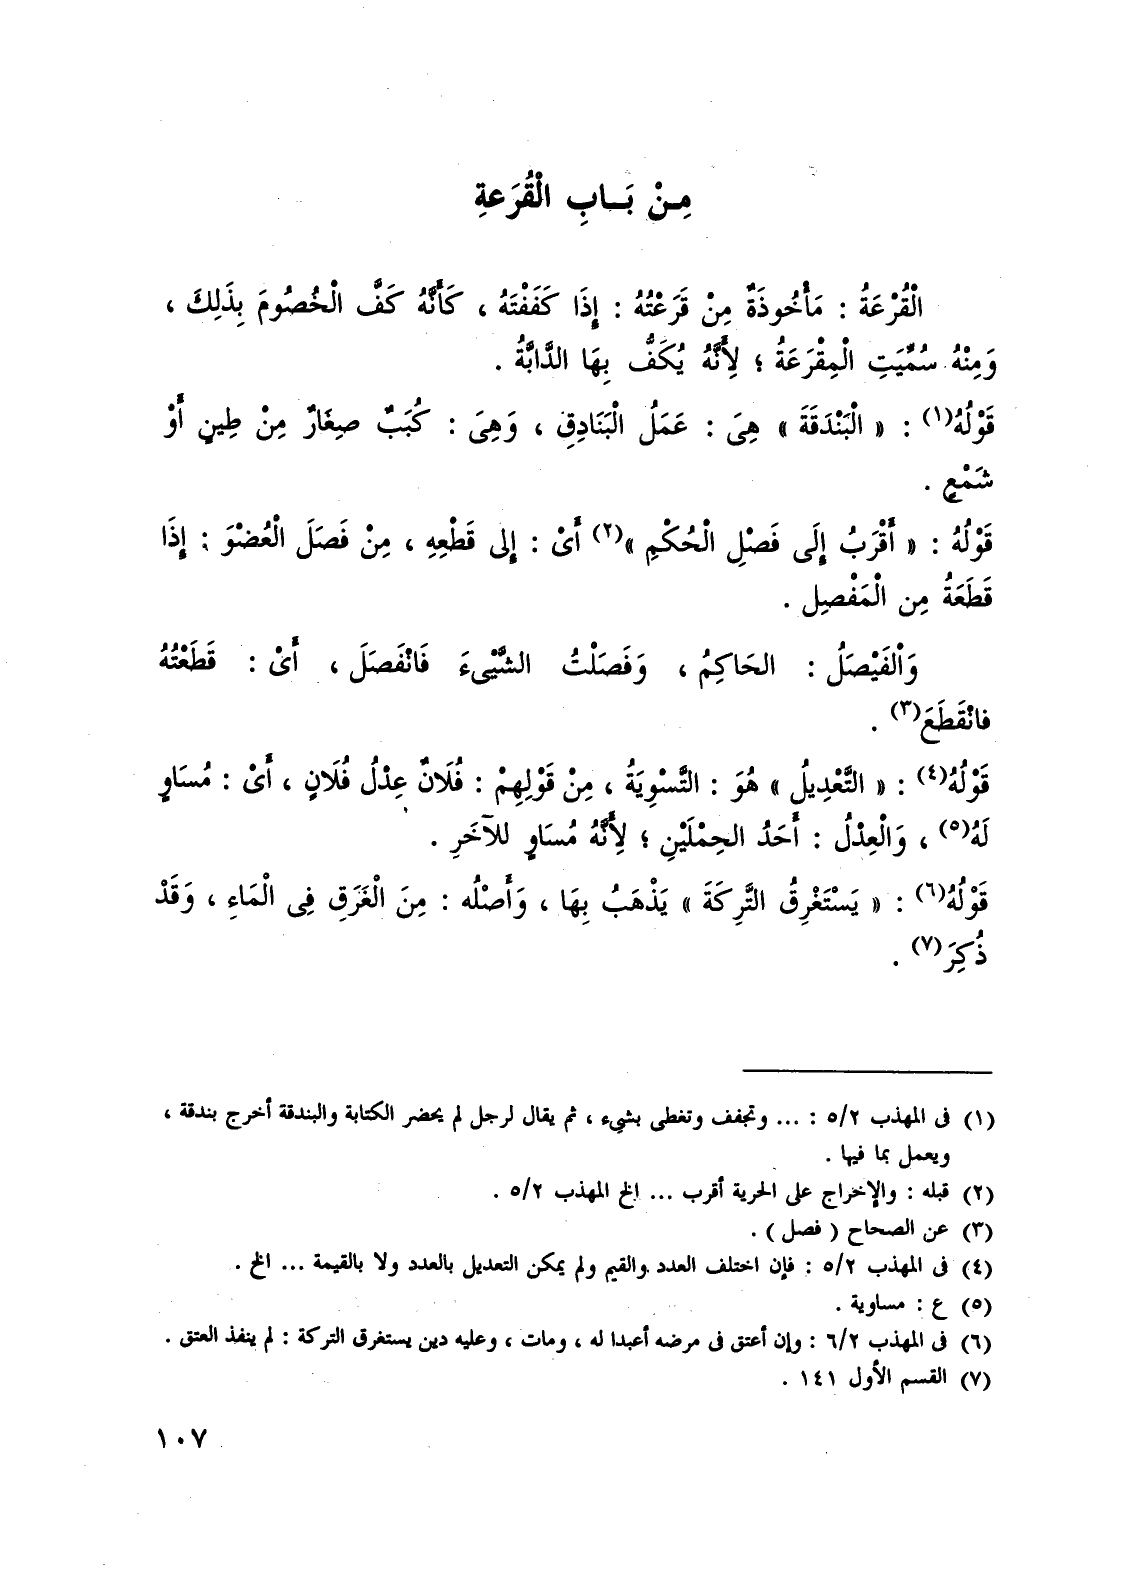 مِـنْ بَـابِ الْقُرَعةِ
الْقُرْعَةُ : مَأْخُوذَةٌ مِنْ قَرَعْتُهُ : إِذَا كَفَفْتَهُ ، كَأَنَّهُ كَفَّ الْخُصُومَ بِذَلِكَ ،
وَمِنْهُ سُمِّيَتِ الْمِقْرَعَةُ ؛ لِأَنَّهُ يُكَفُّ بِهَا الدَّابَّةُ .
قَوْلُهُ(١) : « الْبَنْدَقَةَ » هِىَ : عَمَلُ الْبَنَادِقِ ، وَهِىَ : كُبَبٌ صِغَارٌ مِنْ طِينٍ أَوْ
شَمْعٍ .
قَوْلُهُ : « أَقْرَبُ إِلَى فَصْلِ الْحُكْمِ »(٢) أَىْ : إِلى قَطْعِهِ ، مِنْ فَصَلَ الْعُضْوَ : إِذَا
قَطَعَهُ مِن الْمَفْصِلِ .
وَالْفَيْصَلُ : الحَاكِمُ ، وَفَصَلْتُ الشَّيْىءَ فَانْفَصَلَ ، أَىْ : قَطَعْتُهُ
فانْقَطَعَ(٣) .
قَوْلُهُ(٤) : « التَّعْدِيلُ » هُوَ : التَّسْوِيَةُ ، مِنْ قَوْلِهِمْ : فُلَانٌ عِدْلُ فُلَانٍ ، أَىْ : مُسَاوٍ
لَهُ(٥) ، وَالْعِدْلُ : أَحَدُ الحِمْلَيْنِ ؛ لِأَنَّهُ مُسَاوٍ للآخَرِ .
قَوْلُهُ(٦) : « يَسْتَغْرِقُ التَّرِكَةَ » يَذْهَبُ بِهَا ، وَأَصْلُه : مِنَ الْغَرَقِ فِى الْمَاءِ ، وَقَدْ
ذُكِرَ(٧) .
(١) فى المهذب ٥/٢ : ... وتجفف وتغطى بشىء ، ثم يقال لرجل لم يحضر الكتابة والبندقة أخرج بندقة ،
ويعمل بما فيها .
(٢) قبله : والإخراج على الحرية أقرب ... الخ المهذب ٥/٢ .
(٣) عن الصحاح ( فصل ) .
(٤) فى المهذب ٥/٢ : فإن اختلف العدد والقيم ولم يمكن التعديل بالعدد ولا بالقيمة ... الخ .
(٥) ع : مساوية .
(٦) فى المهذب ٦/٢ : وإن أعتق فى مرضه أعبدا له ، ومات ، وعليه دين يستغرق التركة : لم ينفذ العتق .
(٧) القسم الأول ١٤١ .
١٠٧